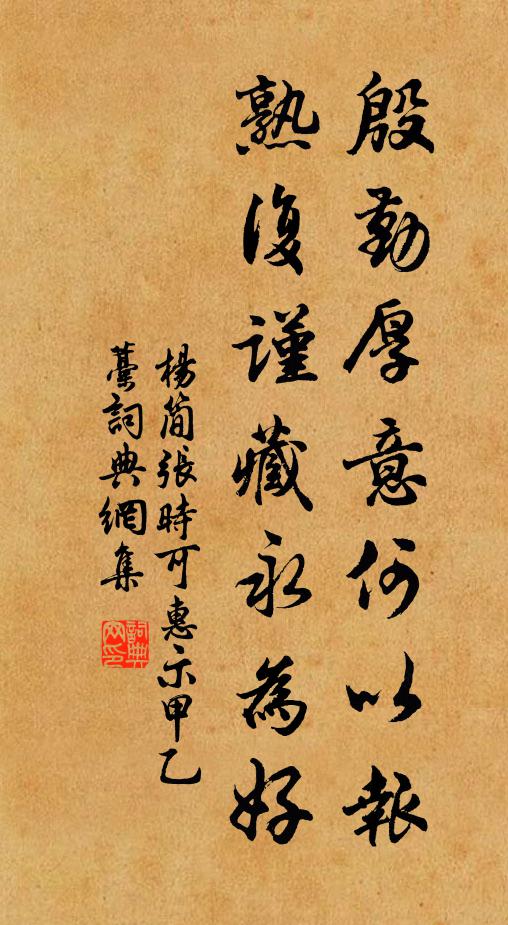 殷勤厚意何以報
熟復謹藏永為好
楊簡張時可惠示甲乙
藁詞典網集
詞典
网印